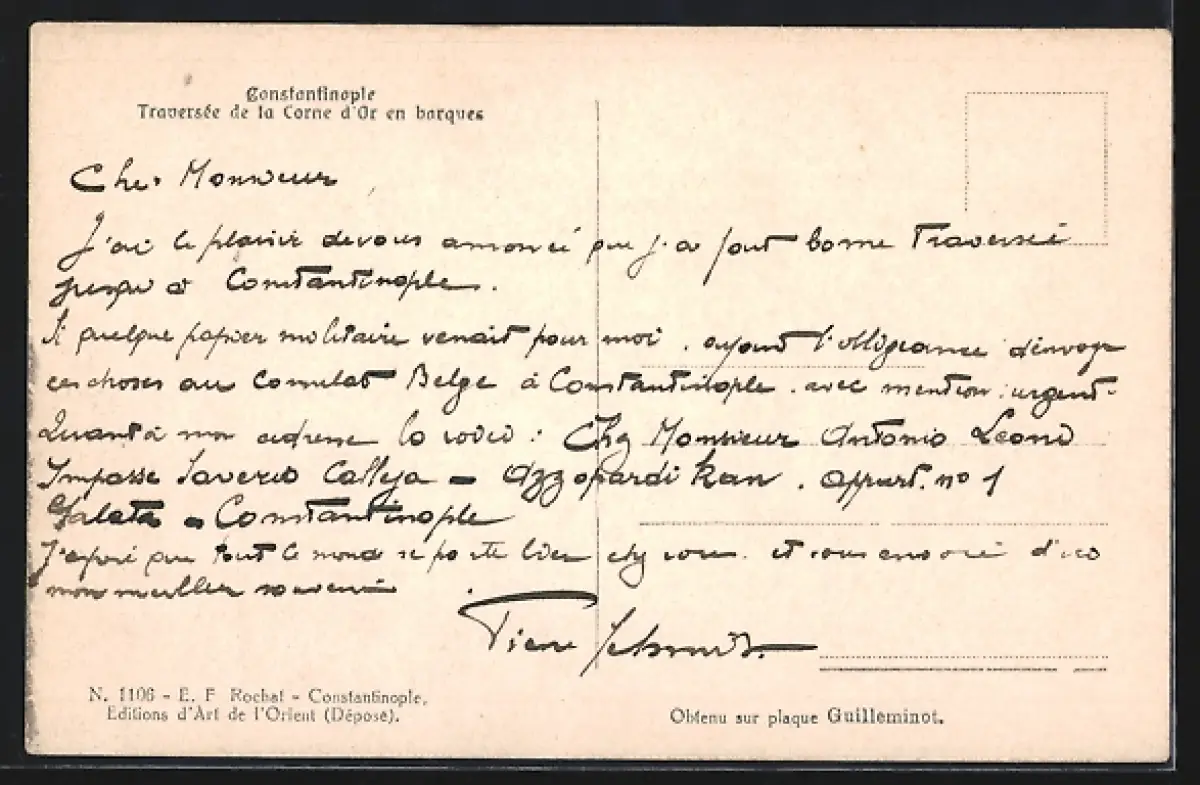 Constantinople
Traversée de la Corne d'Or en barques
Cher Monsieur
J'ai le plaisir de vous annoncé que j'ai fait bonne Traversée
jusqu'à Constantinople.
Si quelque papier militaire venait pour moi, ayant l'obligeance d'envoyer
ces choses au Consulat Belge à Constantinople. avec mention: urgent.
Quant à mon adresse la voici: Chez Monsieur Antonio Leoni
Impasse Saverio Calleja - Azzopardi Kan. Appart. no 1
Galata - Constantinople
J'espére que tout le monde se porte bien chez vous. et vous envoie d'ici
mon meilleur souvenir
Pierre
N. 1106 - E. F Rochat - Constantinople.
Editions d'Art de l'Orient (Déposé).
Obtenu sur plaque Guilleminot.